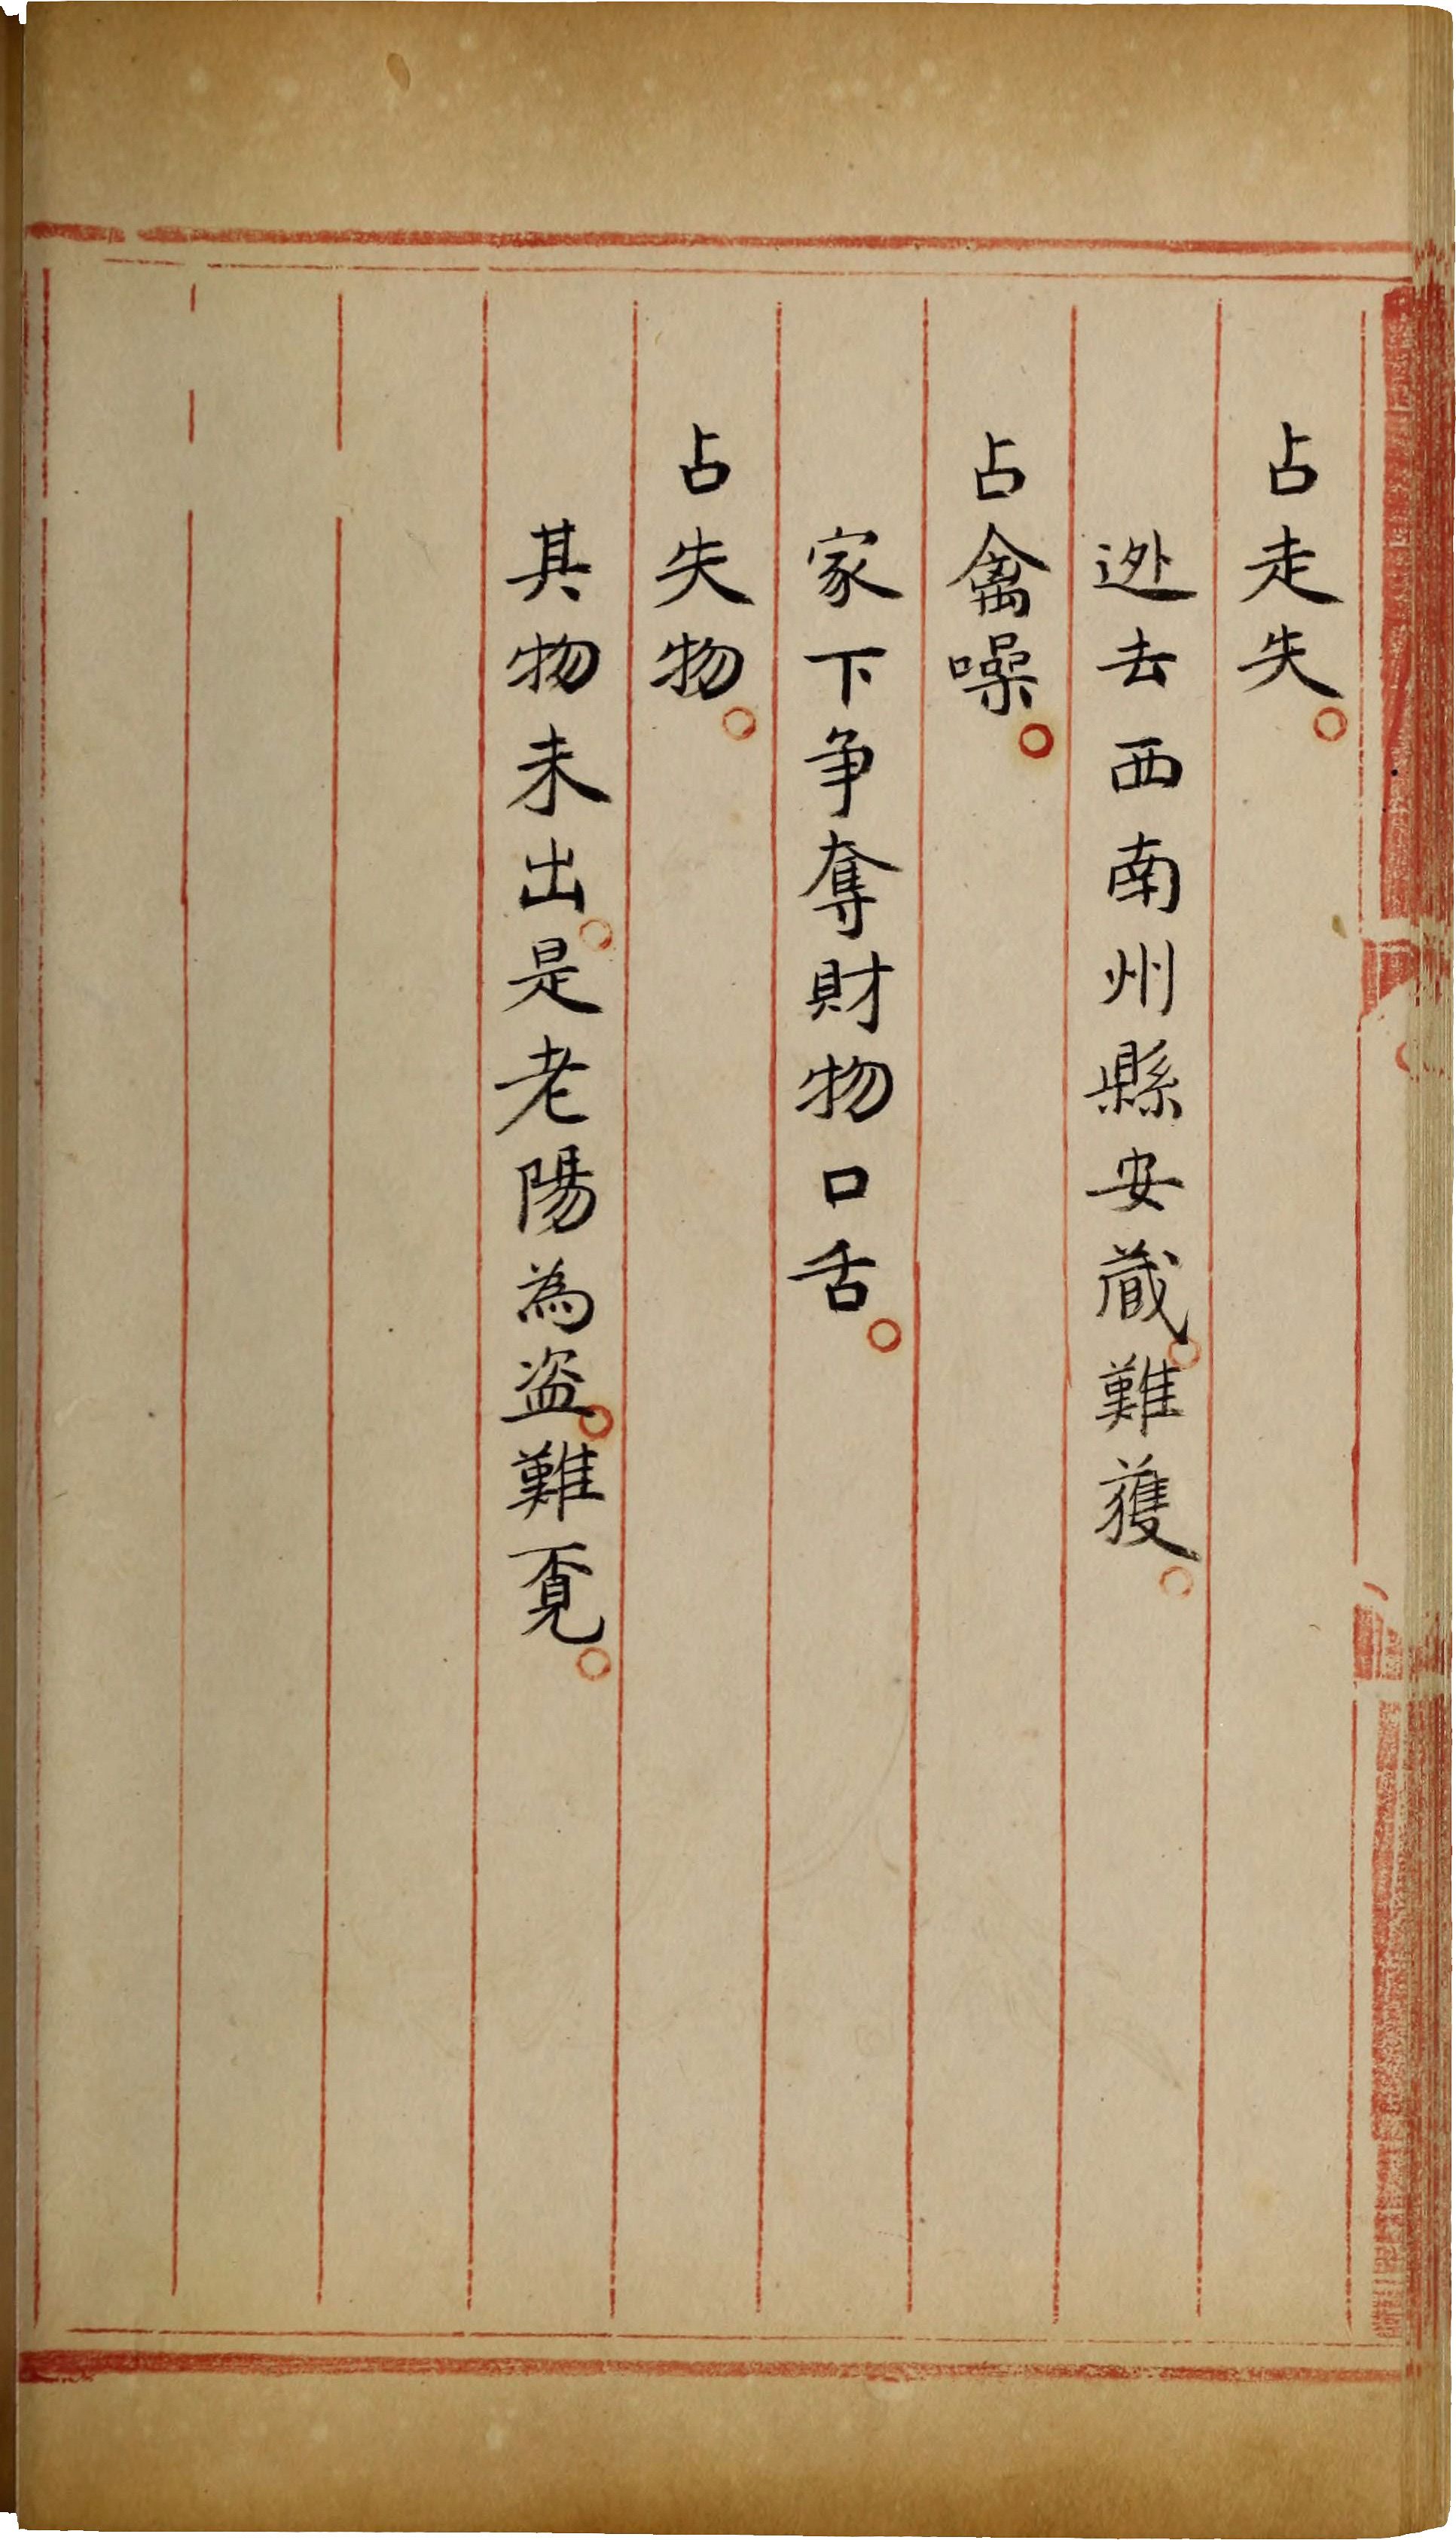 占走失。
迯去西南州縣安藏。難獲。
占禽噪。
家下爭奪財物口舌。
占失物。
其物未出。是老陽為盜。難覔。